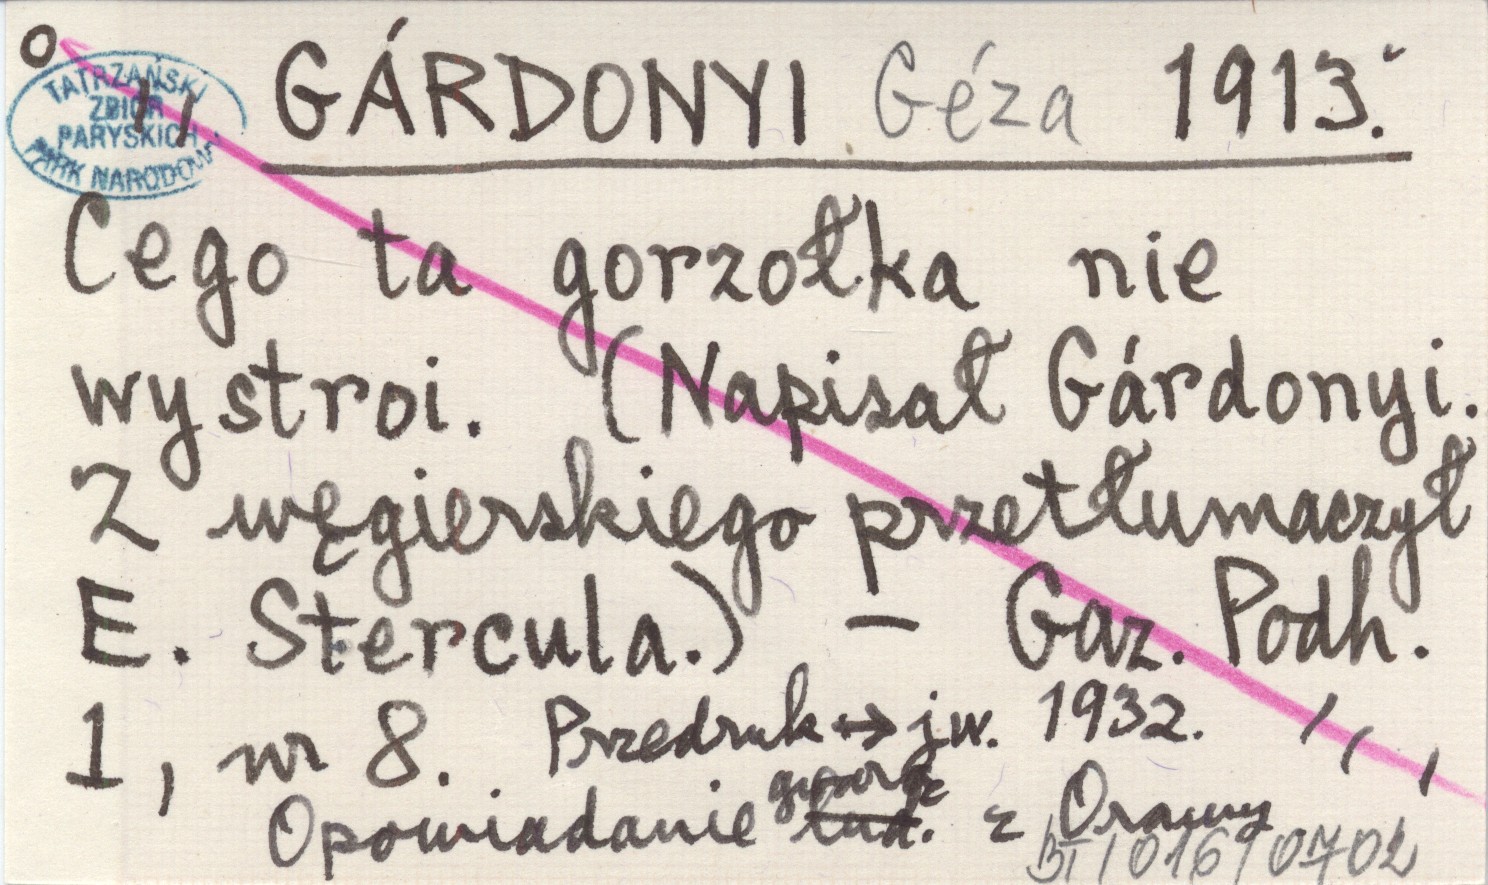 TATRZAŃSKI
ZBIÓR
PARYSKICH
PARK NARODOWY
GÁRDONYI Géza 1913.
Cego ta gorzołka nie
wystroi. (Napisał Gárdonyi.
Z węgierskiego przetłumaczył
E. Stercula.) – Gaz. Podh.
1, nr 8. Przedruk ↔ jw. 1932.
Opowiadanie gwarą z Orawy
BT/016/0702